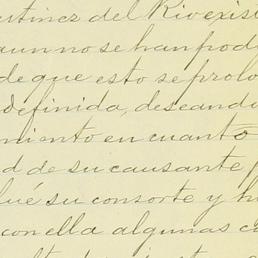 rtinez del Rio exis
aun no se han pod
de que esto se prolo
definida, deseand
miento en cuanto
d de su causante
lué su consorte y h
con ella algunas c